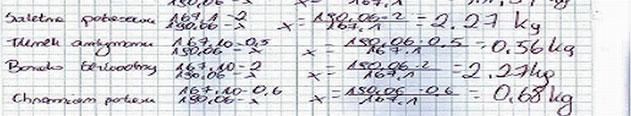 Saletra potasowa 167,1 - 2 190,06 - x x = 190,06 · 2 / 167,1 = 2,27 kg
Tlenek antymonu 167,10 - 0,5 190,06 - x x = 190,06 · 0,5 / 167,1 = 0,56 kg
Boraks bezwodny 167,10 - 2 190,06 - x x = 190,06 - 2 / 167,1 = 2,27 kg
Chromian potasu 167,10 - 0,6 190,06 - x x = 190,06 · 0,6 / 167,1 = 0,68 kg